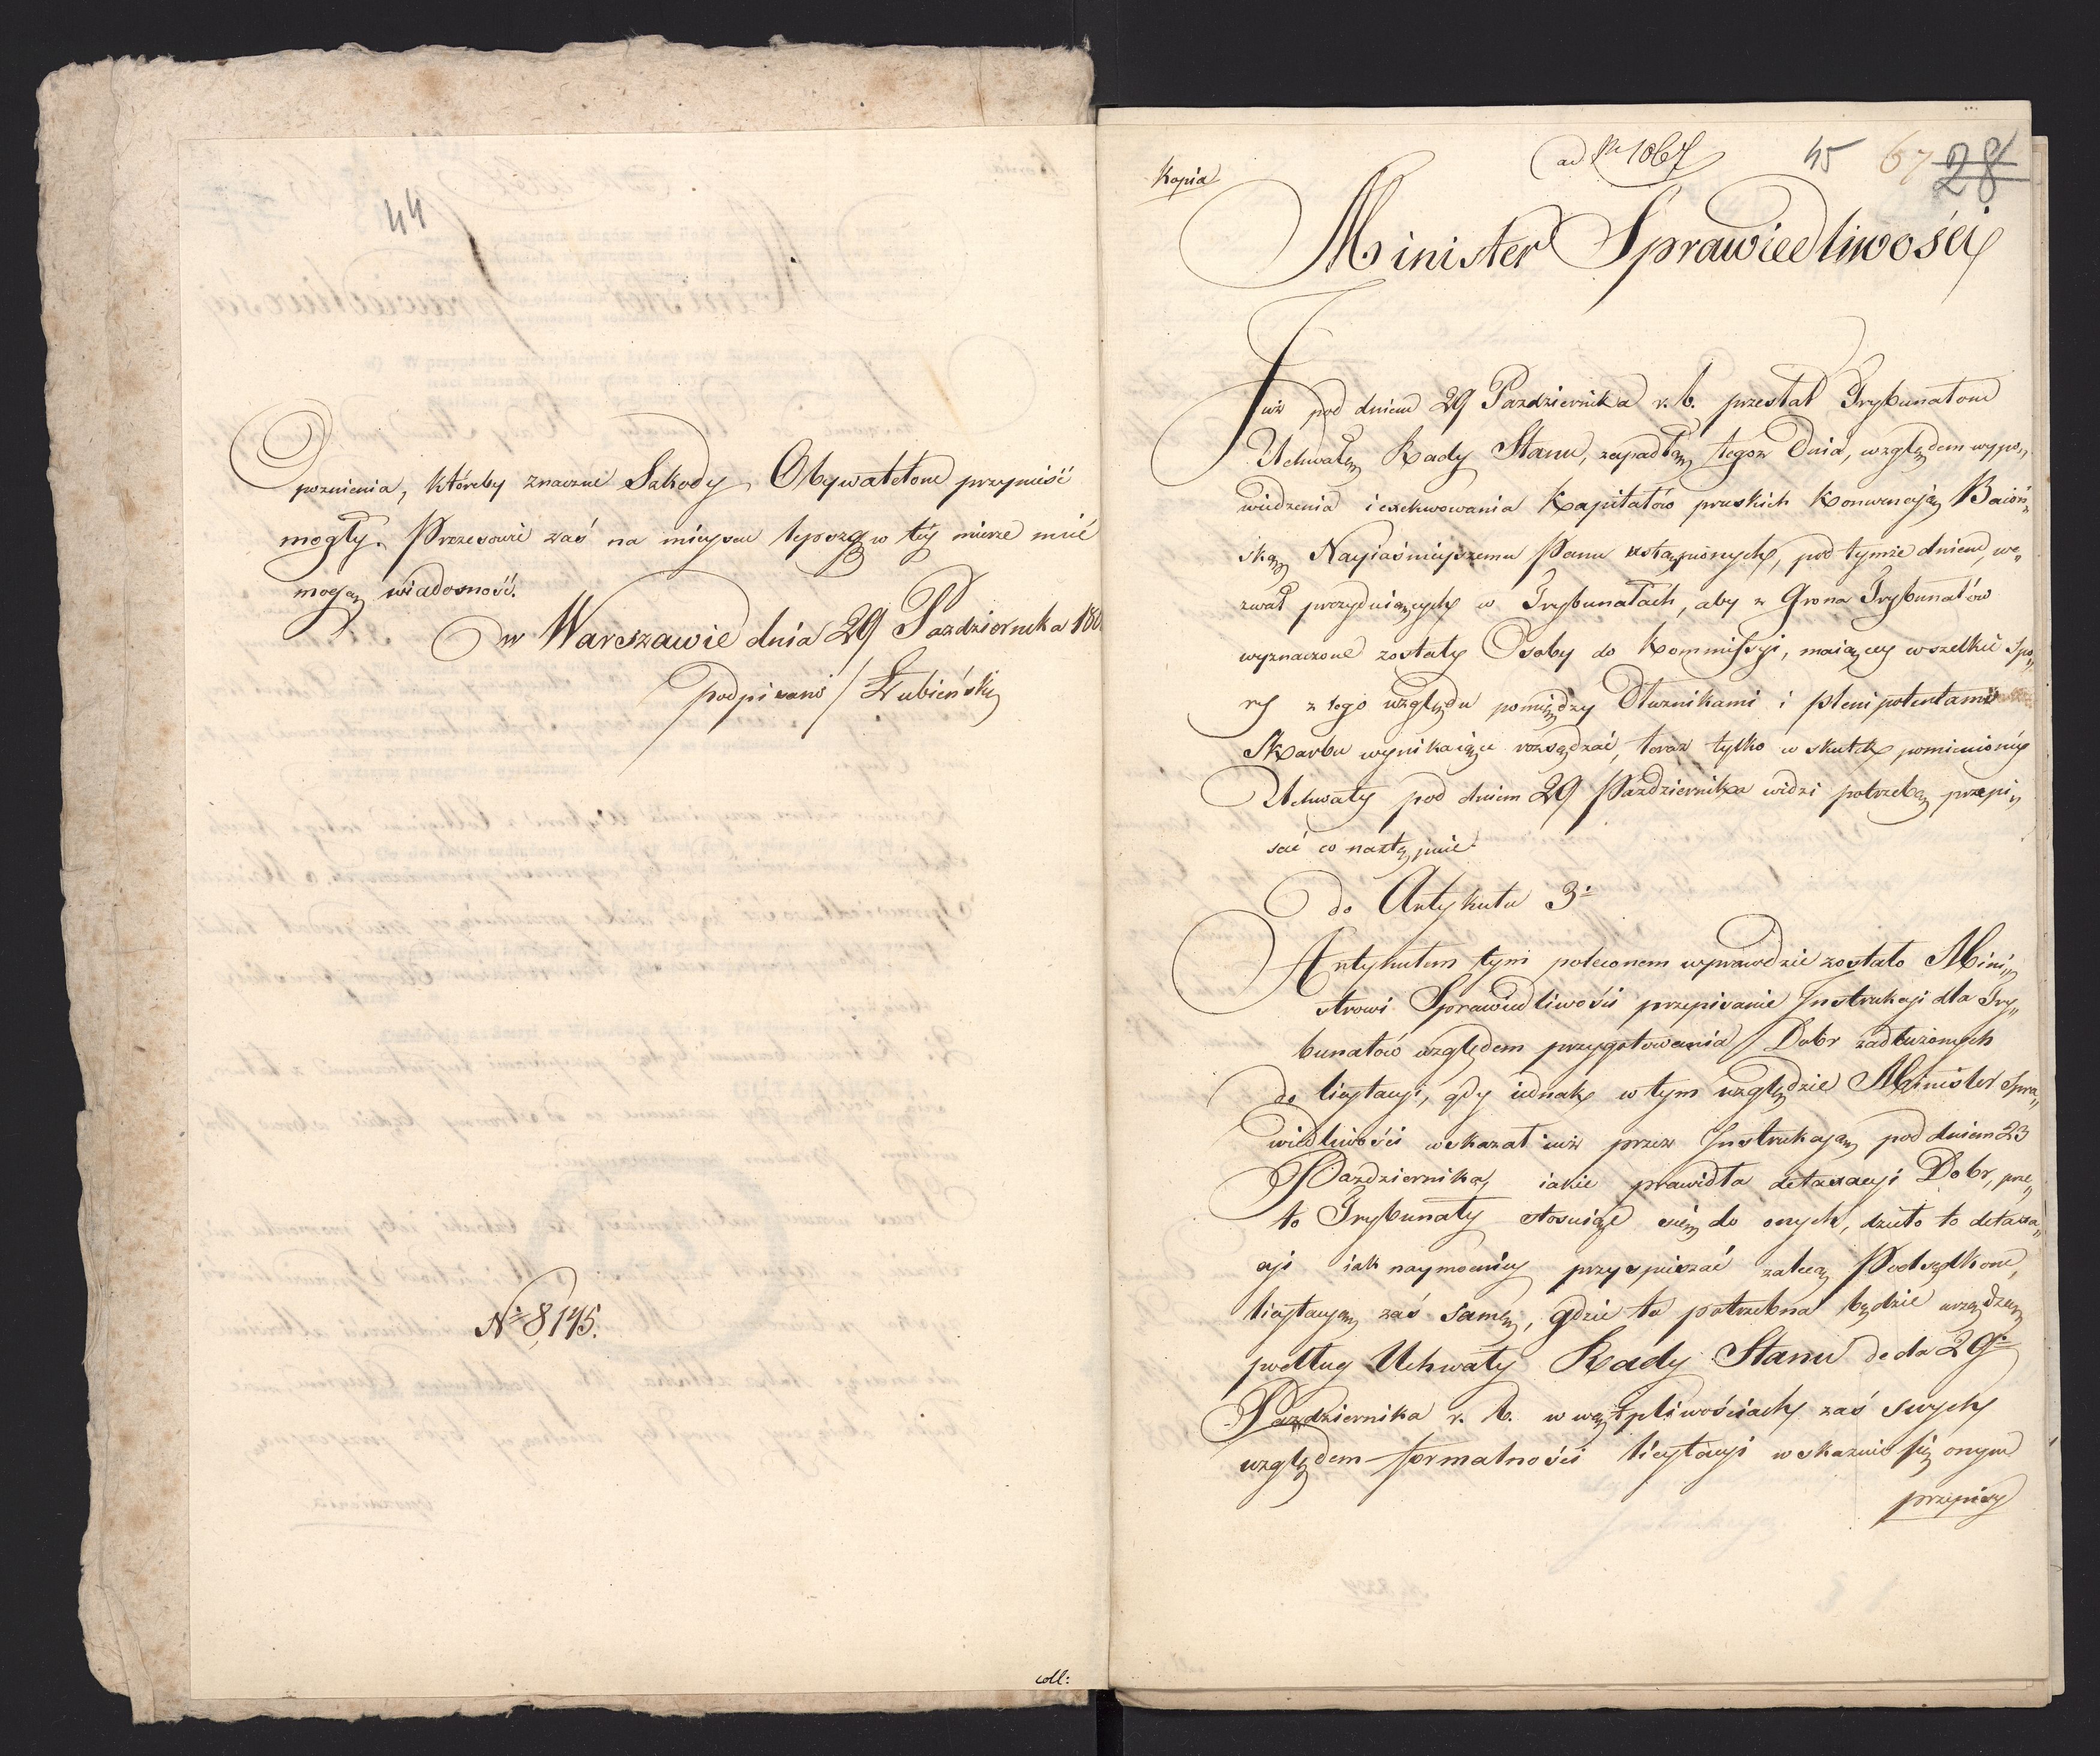 44
Opoznienia, któreby znaczne Szkody Obywatelom przynieść
mogły. Prezesowie zaś na mieyscu lepszą w tey mierze mieć
mogą wiadomość.
w Warszawie dnia 29 Pazdziernika 180
podpisano / Łubieński
No 8,145.
coll:
Kopia
ad Nr 1067
45 67 28
Minister Sprawiedliwości
Juz pod dniem 29 Pazdziernika r. b. przesłał Trybunałom
Uchwałę Rady Stanu, zapadłą tegoz Dnia, względem wypo„
wiedzenia i exekwowania Kapitałów pruskich Konwencyią Baioń„
ską Nayiaśnieyszemu Panu ustąpionych, pod tymże dniem, we„
zwał prezyduiących w Trybunałach, aby z Grona Trybunałów
wyznaczone zostały Osoby do Kommissyi, maiącey wszelkie spo„
ry z tego względu pomiędzy Dłuznikami i plenipotentami
Skarbu wynikaiące rozsądzać, teraz tylko w skutek pomienioney
Uchwały pod dniem 29 Pazdziernika widzi potrzebę przepi„
sać co następuie:
do Artykułu 3o
Artykułem tym poleconem wprawdzie zostało Mini„
strowi Sprawiedliwości przepisanie Instrukcyi dla Try„
bunałów względem przygotowania Dobr zadłużonych
do licytacyi, gdy iednak w tym względzie Minister Spra„
wiedliwości wskazał iuż przez Instrukcyą pod dniem 23
Pazdziernika, iakie prawidła detaxacyi Dobr, prze„
to Trybunały stosuiąc się do onych, dzieło to detaxa„
cyi iak naymocniey przyspieszać zalecą Podsędkom,
licytacyą zaś samą, gdzie ta potrzebna będzie urządzą
podług Uchwały Rady Stanu de da 29o
Pazdziernika r. b. w wątpliwościach zaś swych
względem formalności licytacyi wskazuie się onym
przepisy